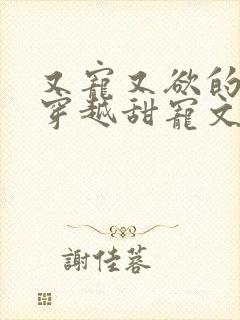 又寵又欲的
穿越甜寵文
謝佳蓉